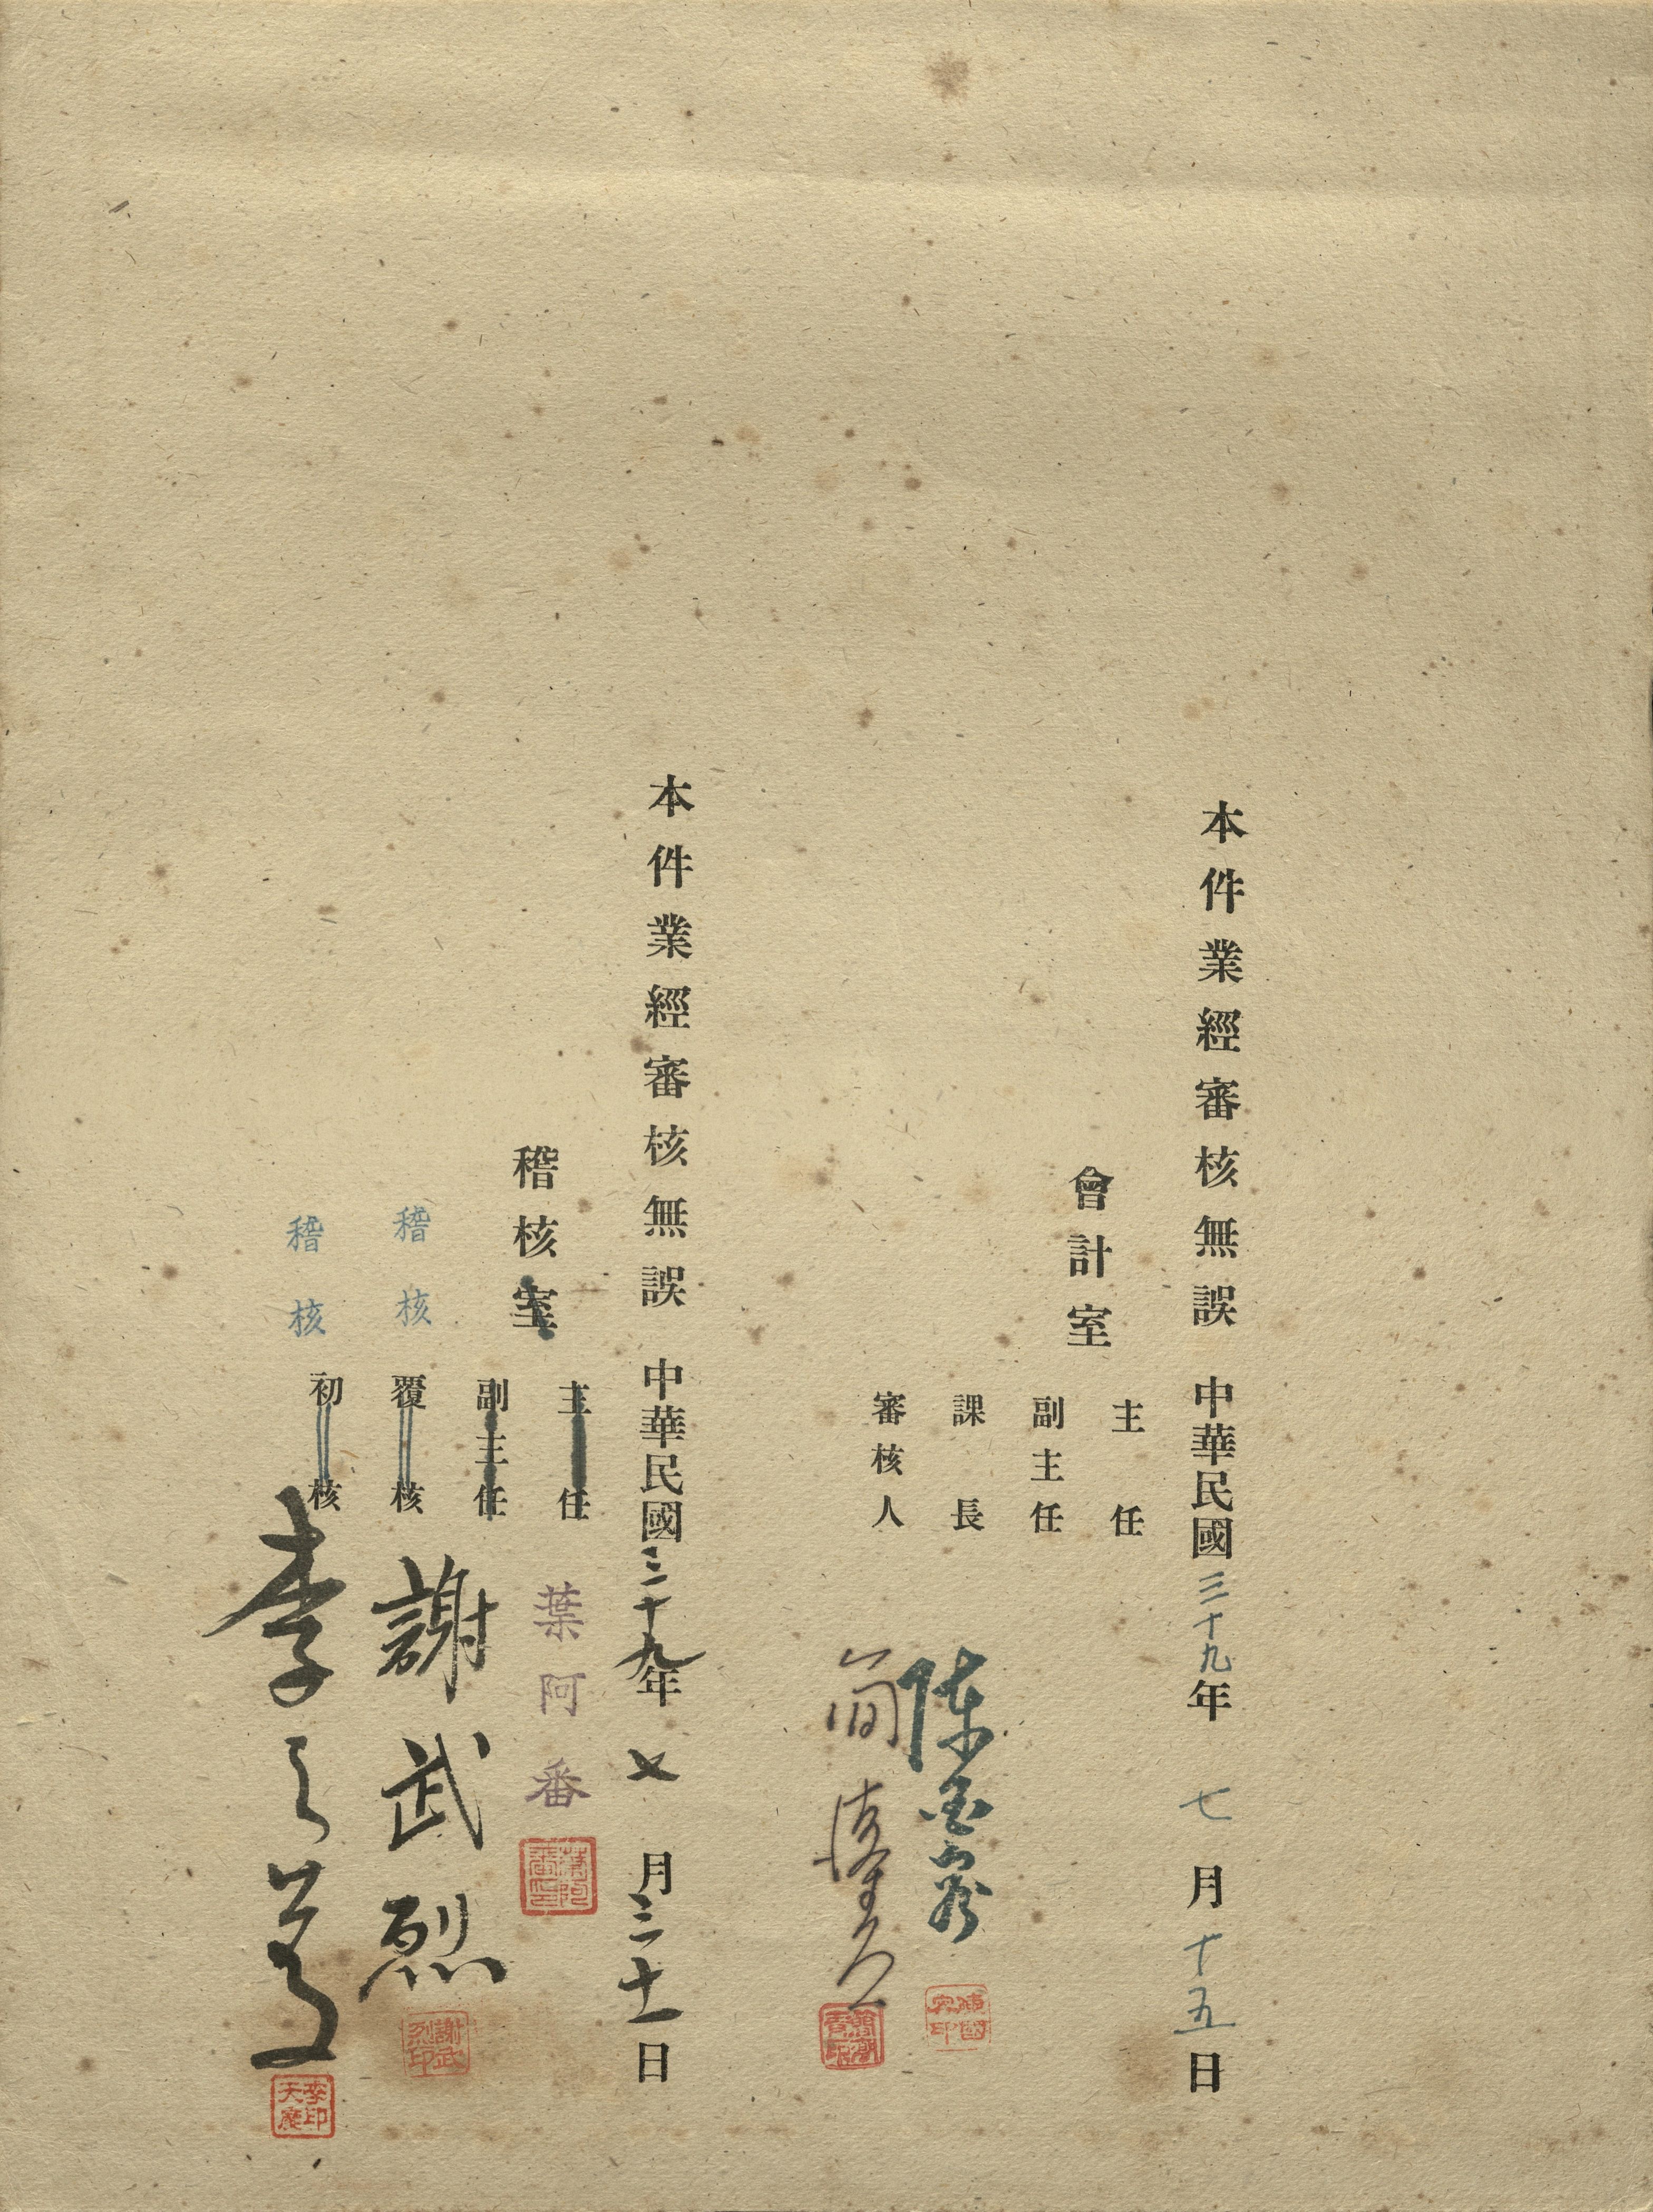 本件業經審核無誤 中華民國三十九年 七月十五日
會計室
主任
副主任
課長 陳國
審核人 簡
本件業經審核無誤 中華民國三十九年 七月三十一日
稽核室
主任
葉阿番
葉阿番印
副主任
稽核
覆核
謝武烈
謝武烈印
稽核
初核
李天慶
李天慶印